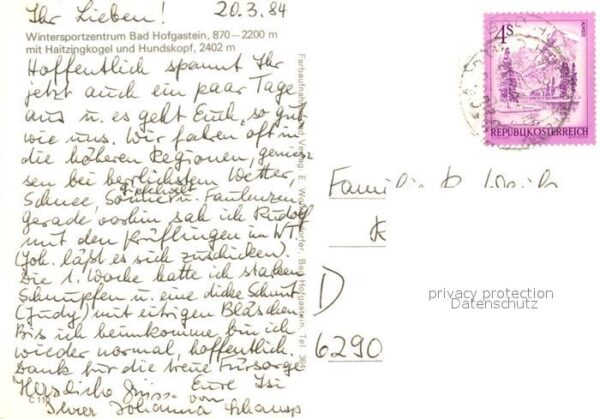 Ihr Lieben! 20.3.84
Wintersportzentrum Bad Hofgastein, 870–2200 m
mit Haitzingkogel und Hundskopf, 2402 m
Hoffentlich spannt Ihr
jetzt auch ein paar Tage
aus u. es geht Euch, so gut
wie uns. Wir fahren oft in
die höheren Regionen, genies-
sen bei herrlichstem Wetter,
Schnee, Sonne u. Faulenzen.
Gerade vorhin sah ich Rudolf
mit den
(Joh. läßt es sich zuschicken).
Die 1. Woche hatte ich starken
Schnupfen u. eine dicke
(Judy) mit eitrigen Bläschen.
Bis ich heimkomme bin ich
wieder normal, hoffentlich.
Dank für die treue Fürsorge
Herzliche Grüsse von
Eure
Johanna
Familie
D
6290
4S
REPUBLIK ÖSTERREICH
privacy protection
Datenschutz